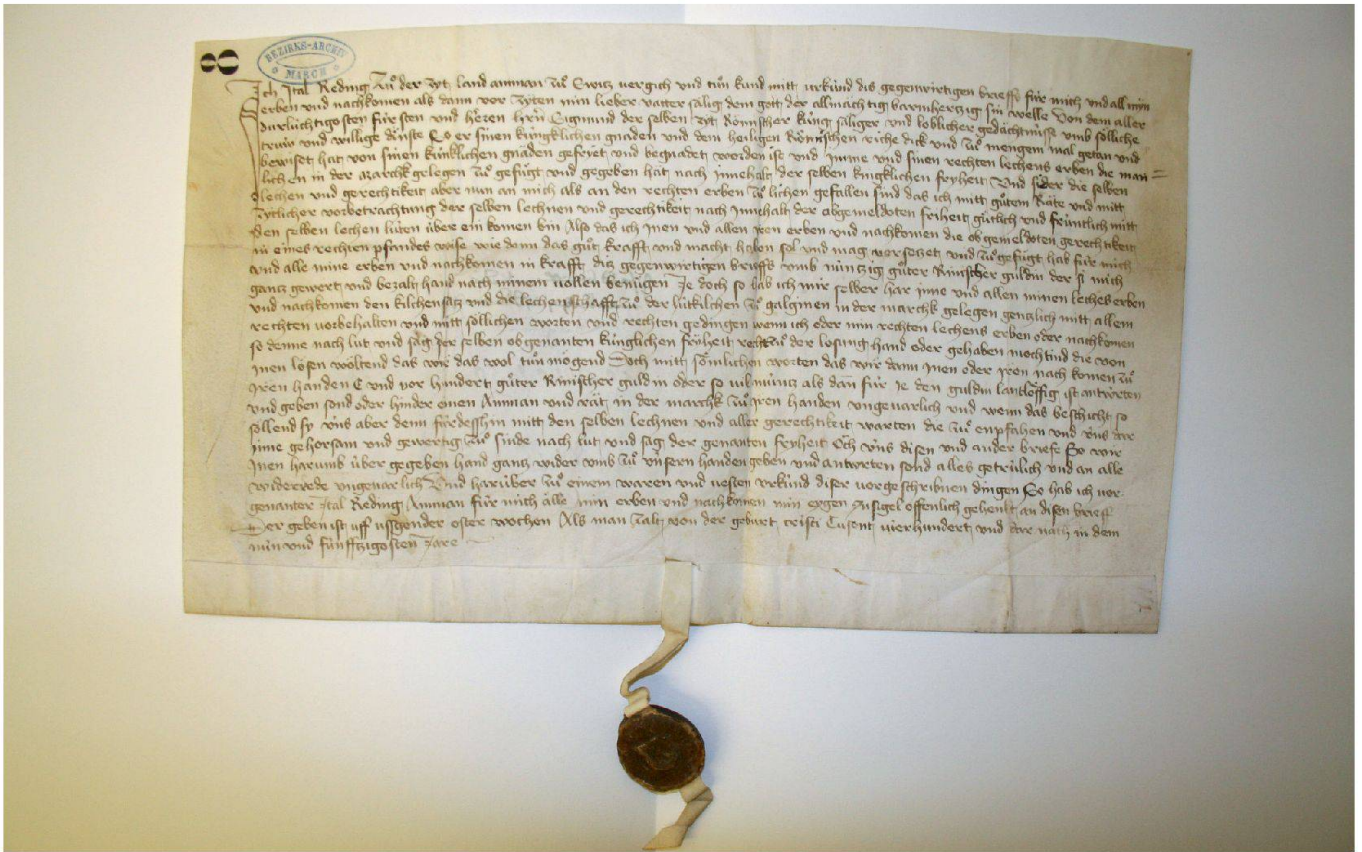 8
BEZIRKS-ARCHIV
MARCH
Ich Ital Reding Zů der Zyt landamman zů Switz vergich und tůn kund mitt urkůnd dis gegenwirtigen brieffs für mich und all min
erben und nachkomen als dann vor zyten min lieber vatter sälig dem gott der allmächtig barmhertzig sin welle Von dem aller
durlüchtigosten fürsten und heren hern Sigmund der selben zyt Römischer küng säliger und loblicher gedächtnisse umb sölliche
trüw und willige dinste So er sinen küngklichen gnaden und dem heiligen Römschen riche dick und zů mengem mal getan und
bewiset hat von sinen künklichen gnaden gefriet und begnadet worden ist und imme und sinen rechten lechens erben die man=
lechen in der march gelegen zů gefügt und gegeben hat nach innehalt der selben küngklichen fryheit Und sider die selben
lechen und gerechtikeit aber nun an mich als an den rechten erben zů lichen gefallen sind das ich mitt gůtem Räte und mitt
zytlicher vorbetrachtung der selben lechnen und gerechtikeit nach innehalt der abgemeldoten friheit gütlich und früntlich mitt
den selben lechen lüten über ein komen bin Also das ich inen und allen iren erben und nachkomen die obgemeldoten gerechtikeit
in eines rechten pfandes wise wie denn das gůt krafft und macht haben sol und mag versetzet und zůgefügt hab für mich
und alle mine erben und nachkomen in krafft diz gegenwirtigen brieffs umb nüntzig gůter Rinischer guldin der si mich
gantz gewert und bezalt hand nach minem vollen benügen Je doch so hab ich mir selber har inne und allen minen leches erben
und nachkomen den kilchensatz und die lechenschafft zů der lütkilchen zů galginen in der marchk gelegen gentzlich mitt allem
rechten vorbehalten und mitt söllichen worten und rechten gedingen wenn ich oder min rechten lechens erben oder nachkomen
so denne nach lut und säg der selben obgenanten künglichen fryheit recht zů der losung hand oder gehaben möchtind die von
inen lösen wöltend das wir das wol tůn mögend Doch mitt sömlichen worten das wir dann inen oder iren nach komen zů
iren handen E und vor hundert gůter Rinischer guldin oder so vil müntz als dan für ie den guldin lantlöffig ist antwürten
und geben sond oder hinder einen Amman und rät in der marchk zů iren handen ungevarlich und wenn das beschicht so
söllend sy üns aber denn fürdesshin mitt den selben lechnen und aller gerechtikeit warten die zů enpfahen und üns dar
inne gehorsam und gewertig zů sinde nach lut und sag der genanten fryheit Och üns disen und ander briefe So wir
inen harumb über gegeben hand gantz wider umb zů ünsern handen geben und antwürten sond alles getrülich und an alle
widerrede ungevarlich Und harüber zů einem waren und vesten urkünd diser vorgeschribnen dingen So hab ich vor-
genanter Ital Reding Amman für mich alle min erben und nachkomen min eygen insigel offenlich gehenkt an disen brief
Der geben ist uff ussgender oster wochen Als man zalt von der geburt cristi Tusent vierhundert und dar nach in dem
nün und fünffzigosten Jare